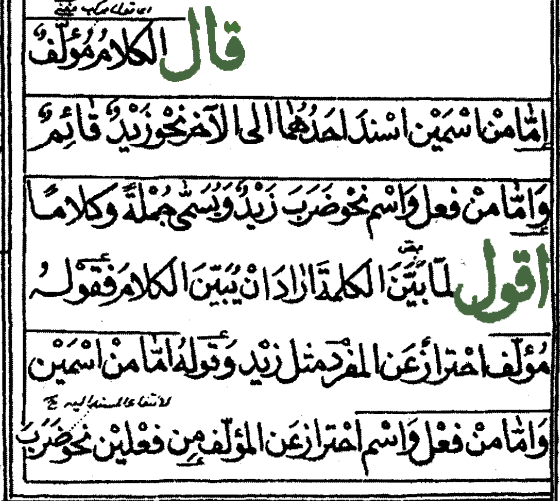 اى تعال مركب
قال الكلامُ مُؤلّفٌ
اِمّا مِنْ اسْمَيْن اسْندَ احَدُهُمَا الى الآخر نحْو زَيْدٌ قَائِمٌ
وَاِمّا مِنْ فعل وَاسْم نحْو ضَرَبَ زَيْدٌ وَيُسَمّى جُمْلَةً وكلامًا
اقول لمّا بَيَّنَ الكلمةَ ارَادَ انْ يُبَيّنَ الكلامَ فقوْلهُ
مُؤلّف احْترازٌ عَن المفْرَد مثل زيْد وَقولهُ امّا مِنْ اسْمَيْن
لانتفاء المسند اليه
وَامّا مِنْ فعْل وَاسْم احْتراز عَن المؤلّف مِن فعْليْن نحو ضَرَبَ